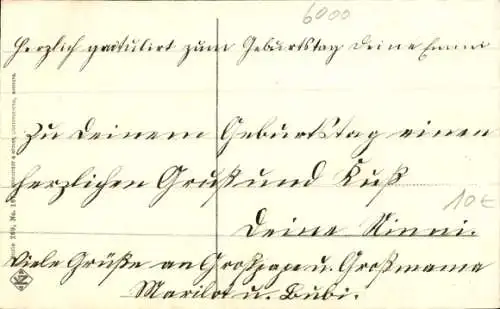 6000
Herzlich gratuliert zum Geburtstag Deine Emmi
Zu Deinem Geburtstag einen
herzlichen Gruß und Kuß
10€
Deine Ninni.
Viele Grüße an Großpapa u. Großmama
Marilot u. Bubi.